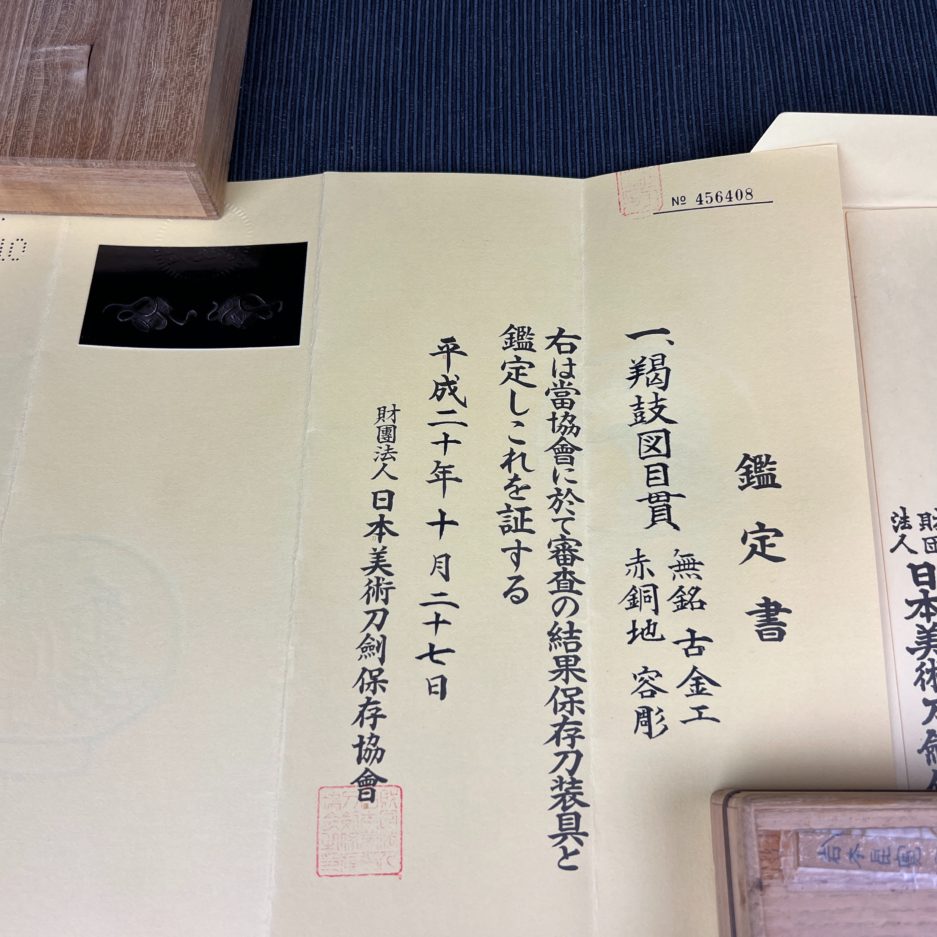 № 456408
鑑定書
一、羯鼓図目貫
無銘 古金工
赤銅地 容彫
右は當協會に於て審査の結果保存刀装具と
鑑定しこれを証する
平成二十年十月二十七日
財團法人 日本美術刀劍保存協會
財団
法人
日本美術刀劍